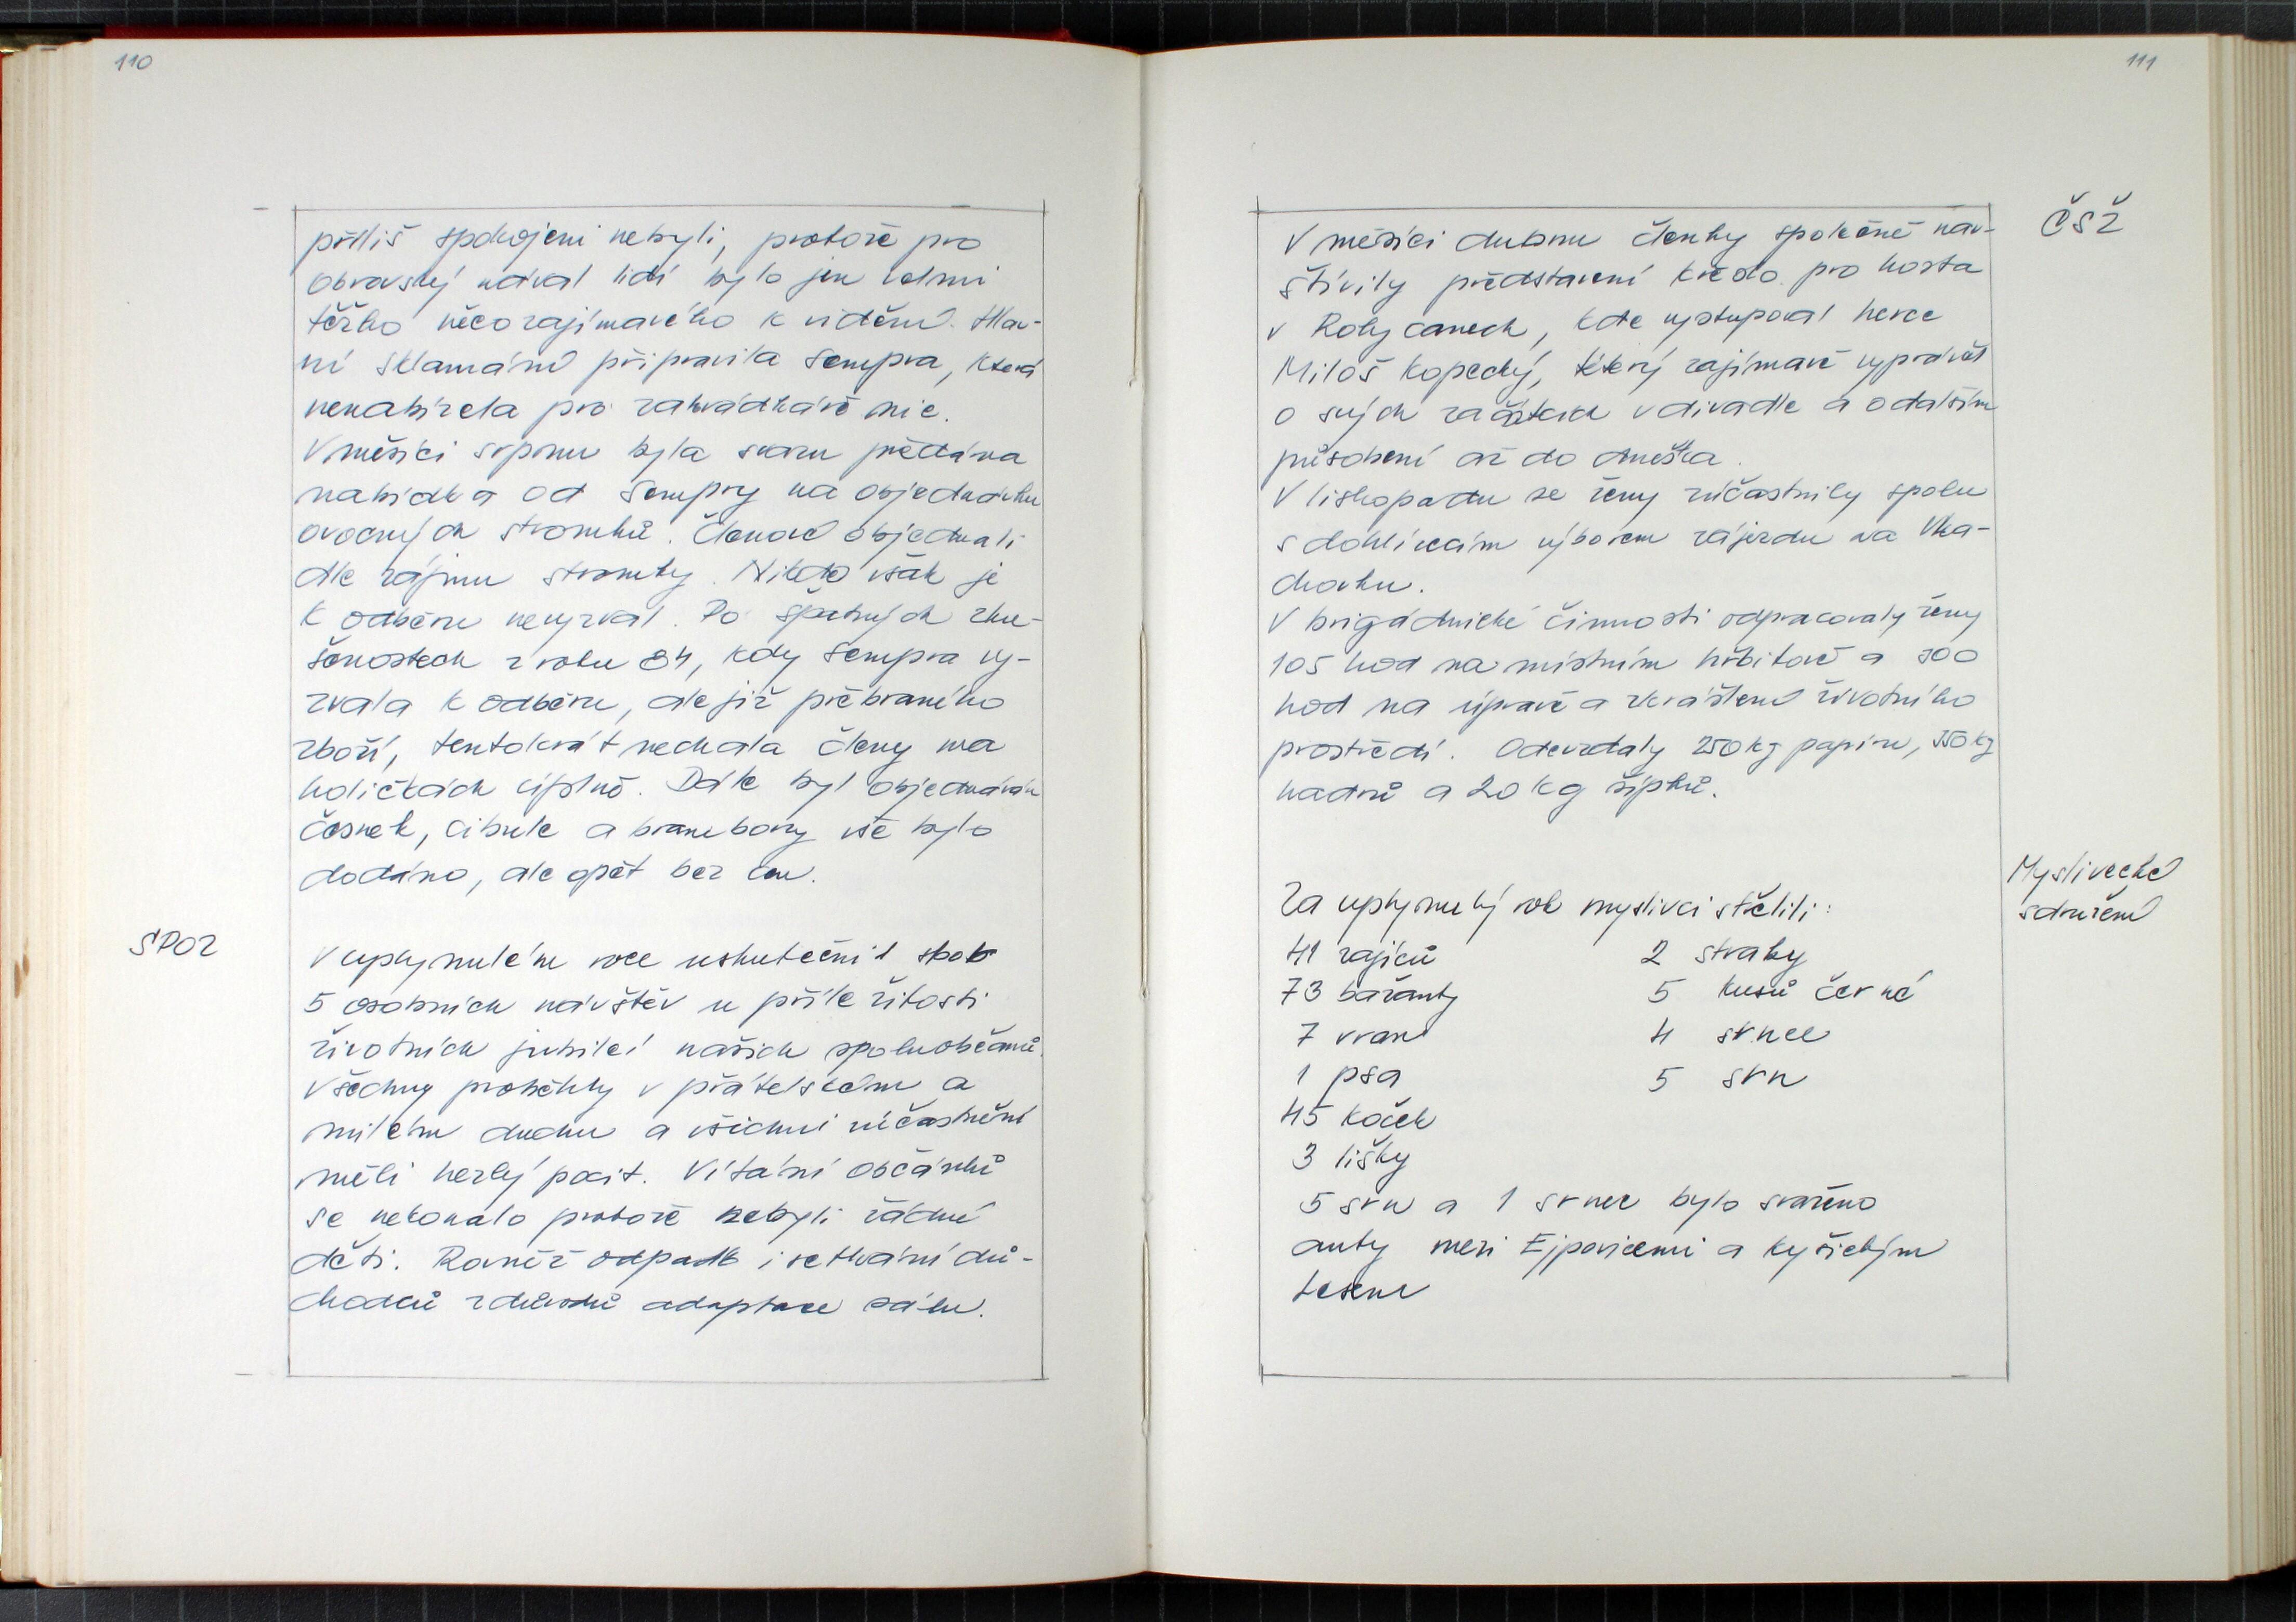 110
příliš spokojeni nebyli, protože pro
obrovský nával lidí bylo jen velmi
těžko něco zajímavého k vidění. Hlav-
ní sklamání připravila Sempra, která
nenabízela pro zahrádkáře nic.
V měsíci srpnu byla svazu předána
nabídka od Sempry na objednávku
ovocných stromků. Členové objednali
dle zájmu stromky. Nikdo však je
k odběru nevyzval. Po špatných zku-
šenostech z roku 84, kdy Sempra vy-
zvala k odběru, ale již přebraného
zboží, tentokrát nechala členy na
holičkách úplně. Dále byl objednáván
česnek, cibule a brambory vše bylo
dodáno, ale opět bez cen.
SPOZ
V uplynulém roce uskutečnil sbob
5 osobních návštěv u příležitosti
životních jubileí našich spoluobčanů.
Všechny proběhly v přátelském a
milém duchu a všichni zúčastnění
měli hezký pocit. Vítání občánků
se nekonalo protože nebyli žádné
děti. Rovněž odpadlo i setkání dů-
chodců z důvodů adaptace sálu.
111
ČSŽ
V měsíci dubnu členky společně nav-
štívily představení křeslo pro hosta
v Rokycanech, kde vystupoval herec
Miloš Kopecký, který zajímavě vyprávěl
o svých začátcích v divadle a o dalším
působení až do dneška.
V listopadu se ženy zúčastnily spolu
s dohlížecím výborem zájezdu na Vla-
chovku.
V brigádnické činnosti odpracovaly ženy
105 hod na místním hřbitově a 300
hod na úpravě a zkrášlení životního
prostředí. Odevzdaly 250 kg papíru, 350 kg
hadrů a 20 kg šípků.
Myslivecké
sdružení
Za uplynulý rok myslivci střelili:
41 zajíců 2 straky
73 bažanty 5 kusů černé
7 vran 4 srnce
1 psa 5 srn
45 koček
3 lišky
5 srn a 1 srnec bylo sraženo
auty mezi Ejpovicemi a Kyšickým
lesem